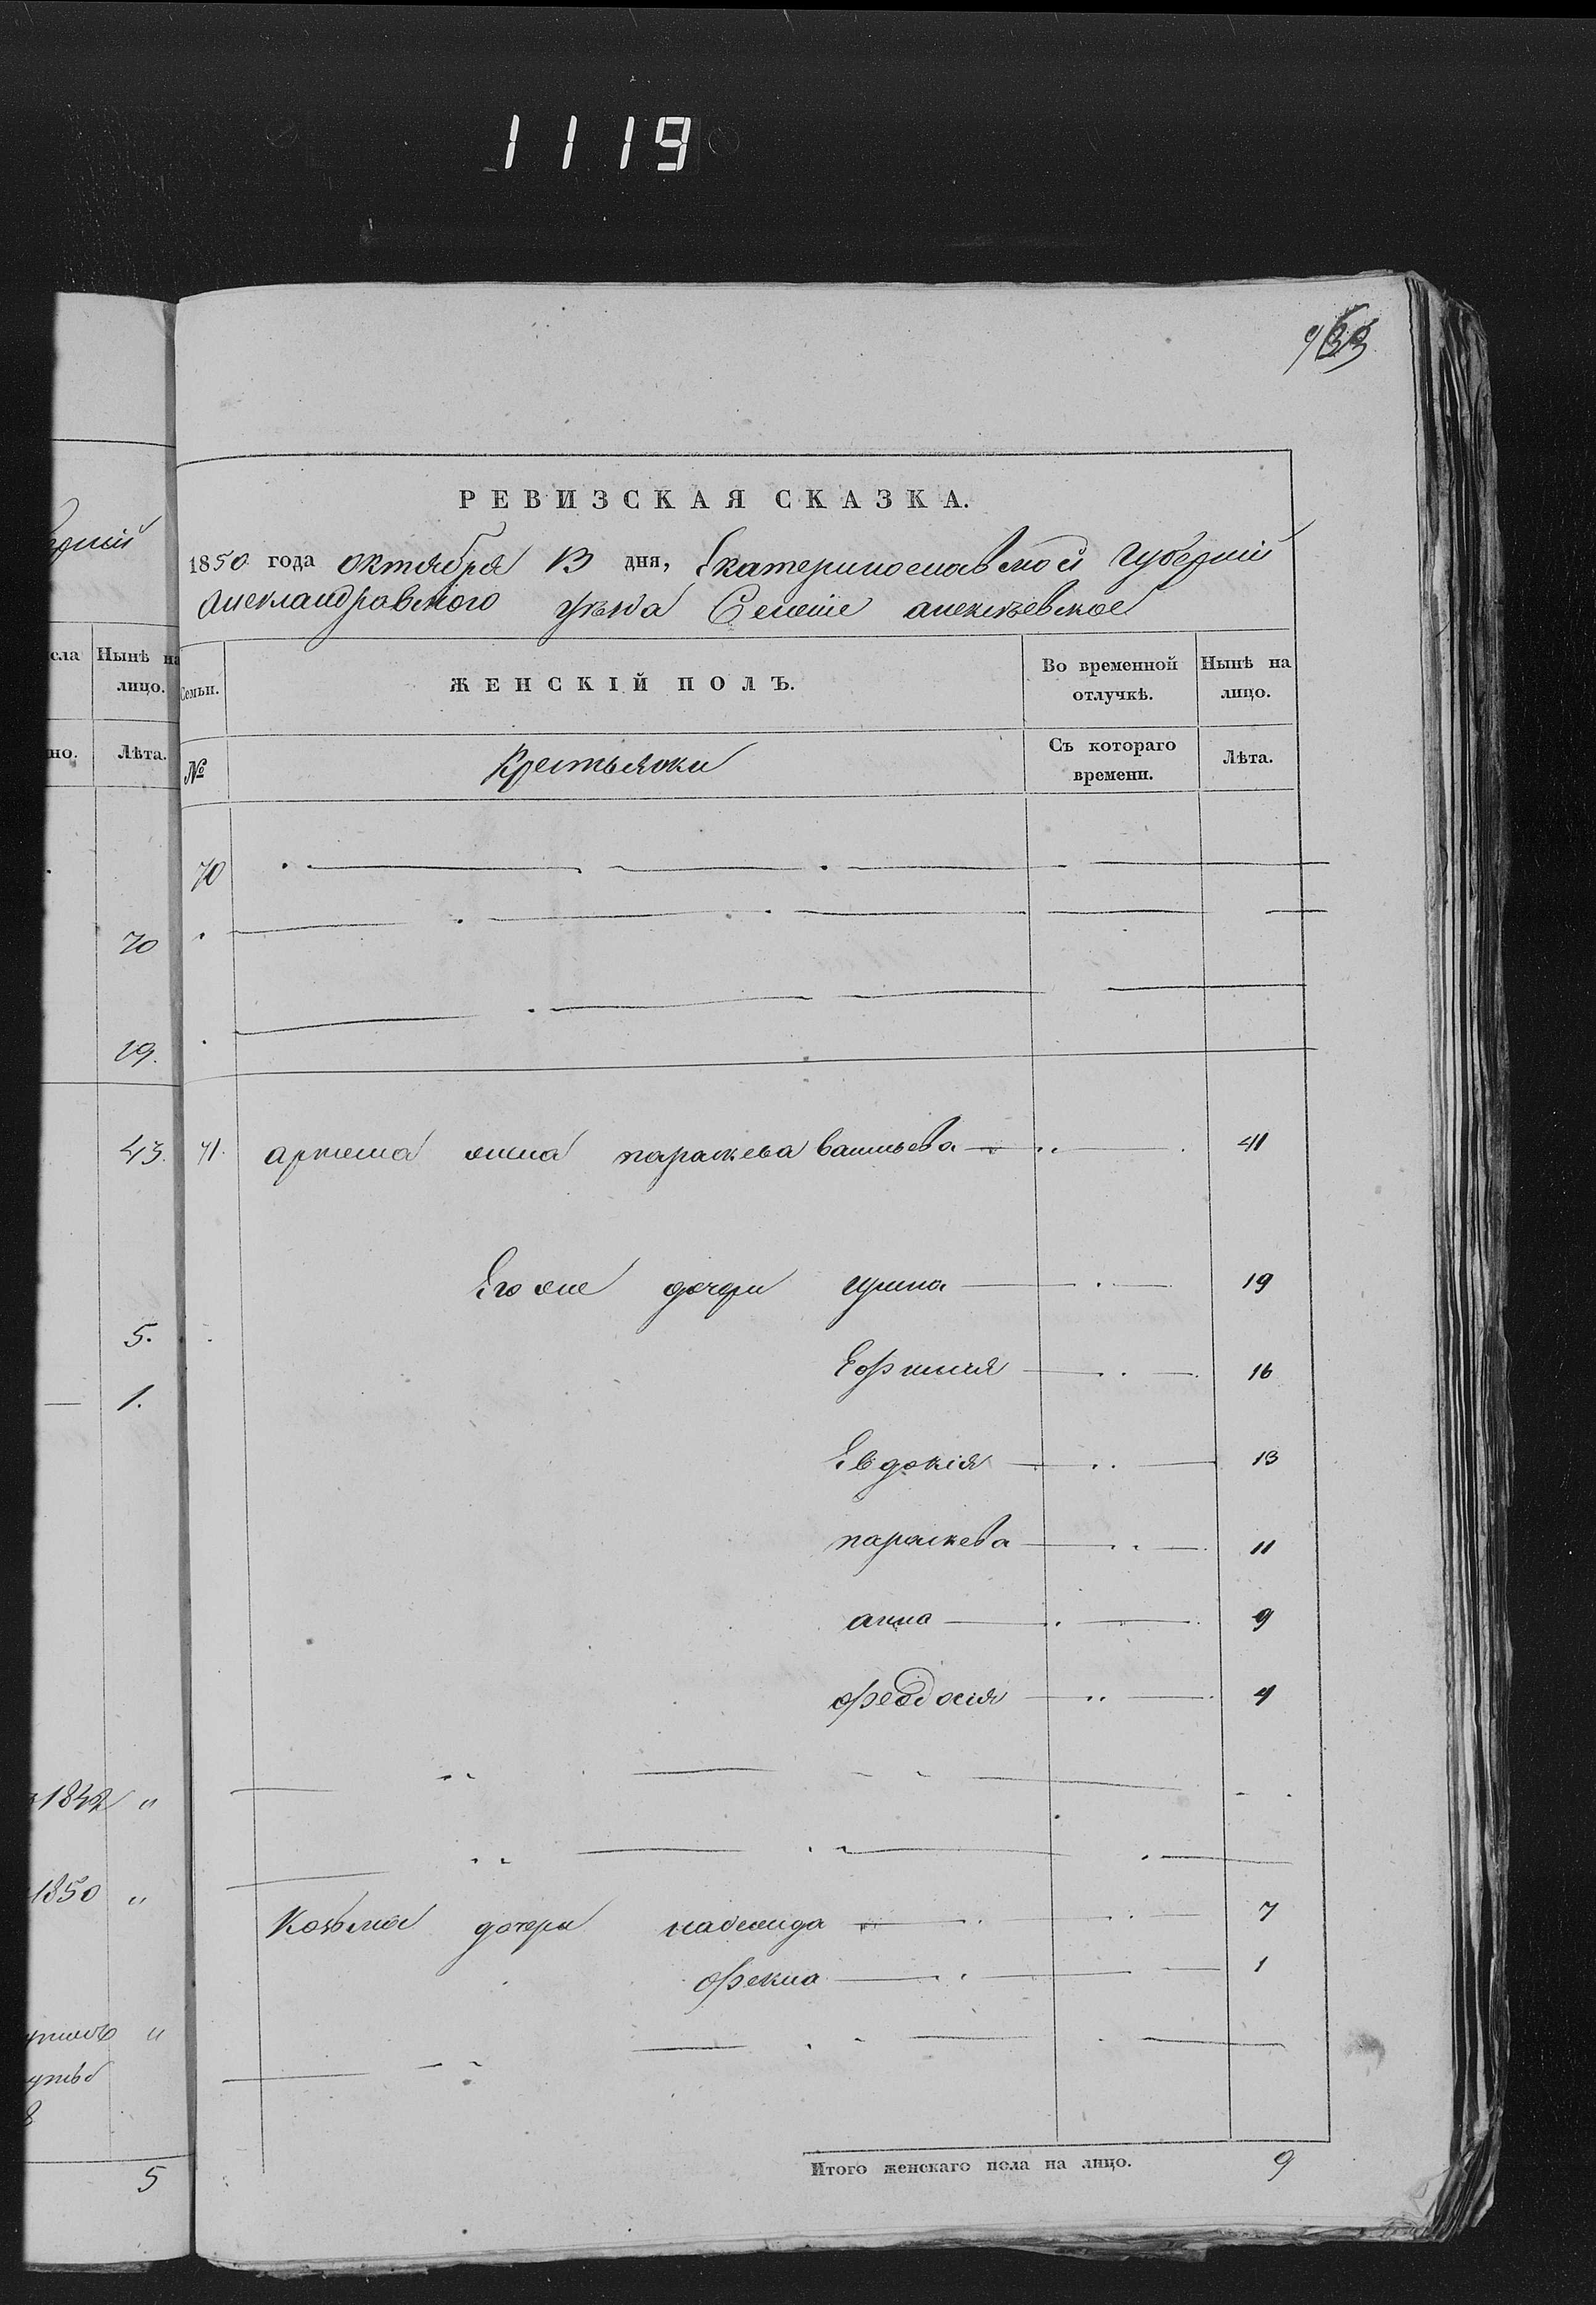 1119
РЕВИЗСКАЯ СКАЗКА.
1850 года октября 13 дня, Екатеринославской Губерніи
Александровского уѣзда Селеніе алексѣевское
сла Нынѣ на лицо.
но. Лѣта.
70
19.
43.
5.
1.
1842 "
1850 "
"
8
5
Семьи. ЖЕНСКІЙ ПОЛЪ. Во временной отлучкѣ. Нынѣ на лицо.
№ Крестьянки Съ котораго времени. Лѣта.
70
71. артема жена параскева васильева 41
Его же дочери ирина 19
Ефимія 16
Евдокія 13
параскева 11
анна 9
феодосія 4
Козьмы дочери надежида 7
фекла 1
Итого женскаго пола на лицо. 9